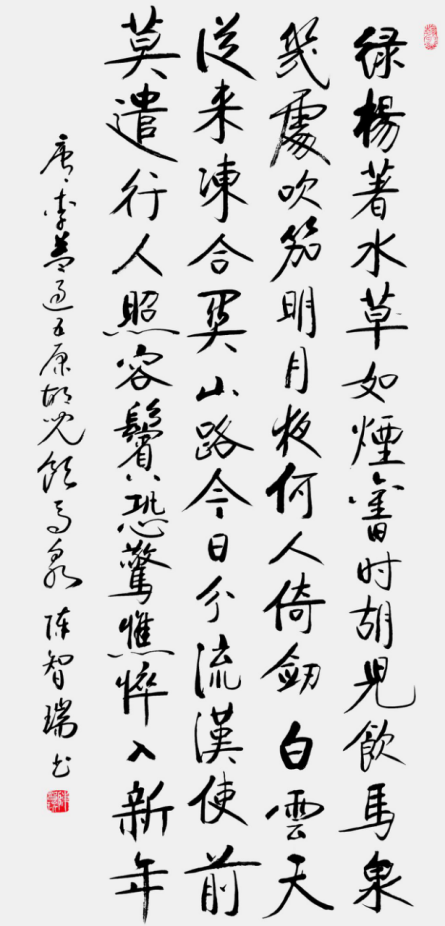 绿楊著水草如煙舊时胡児飲馬泉
幾處吹笳明月夜何人倚劒白雲天
從来凍合関山路今日分流漢使前
莫遣行人照容鬢恐驚憔悴入新年
唐李益過五原胡児飲马泉 陈智瑞书